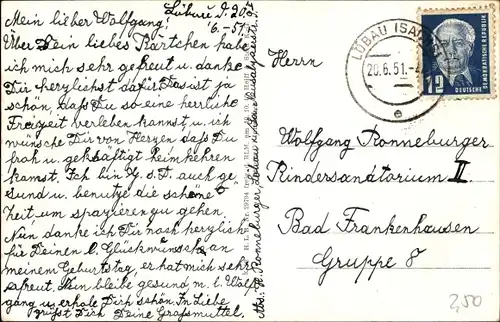 Löbau d. 20.
6.-51.
Mein lieber Wolfgang!
Über Dein liebes Kärtchen habe
ich mich sehr gefreut u. danke
Dir herzlichst dafür. Das ist ja
schön, daß Du so eine herrliche
Freizeit verleben kannst u. ich
wünsche Dir von Herzen daß Du
froh u. gekräftigt heimkehren
kannst. Ich bin G. s. D. auch ge-
sund u. benutze die schöne
Zeit, um spazieren zu gehen.
Nun danke ich Dir noch herzlich
für Deinen l. Glückwunsch an
meinem Geburtstag, er hat mich sehr
gefreut. Nun bleibe gesund m. l. Wolf-
gang u. erhole Dich schön. In Liebe
grüßt Dich Deine Großmuttel.
Abs.: Ronneburger, Löbau
Herrn
Wolfgang Ronneburger
Kindersanatorium II
Bad Frankenhausen
Gruppe 8
LÖBAU (SA
20.6.51.
e
12
DEUTSCHE
DEMOKRATISCHE REPUBLIK
2,50